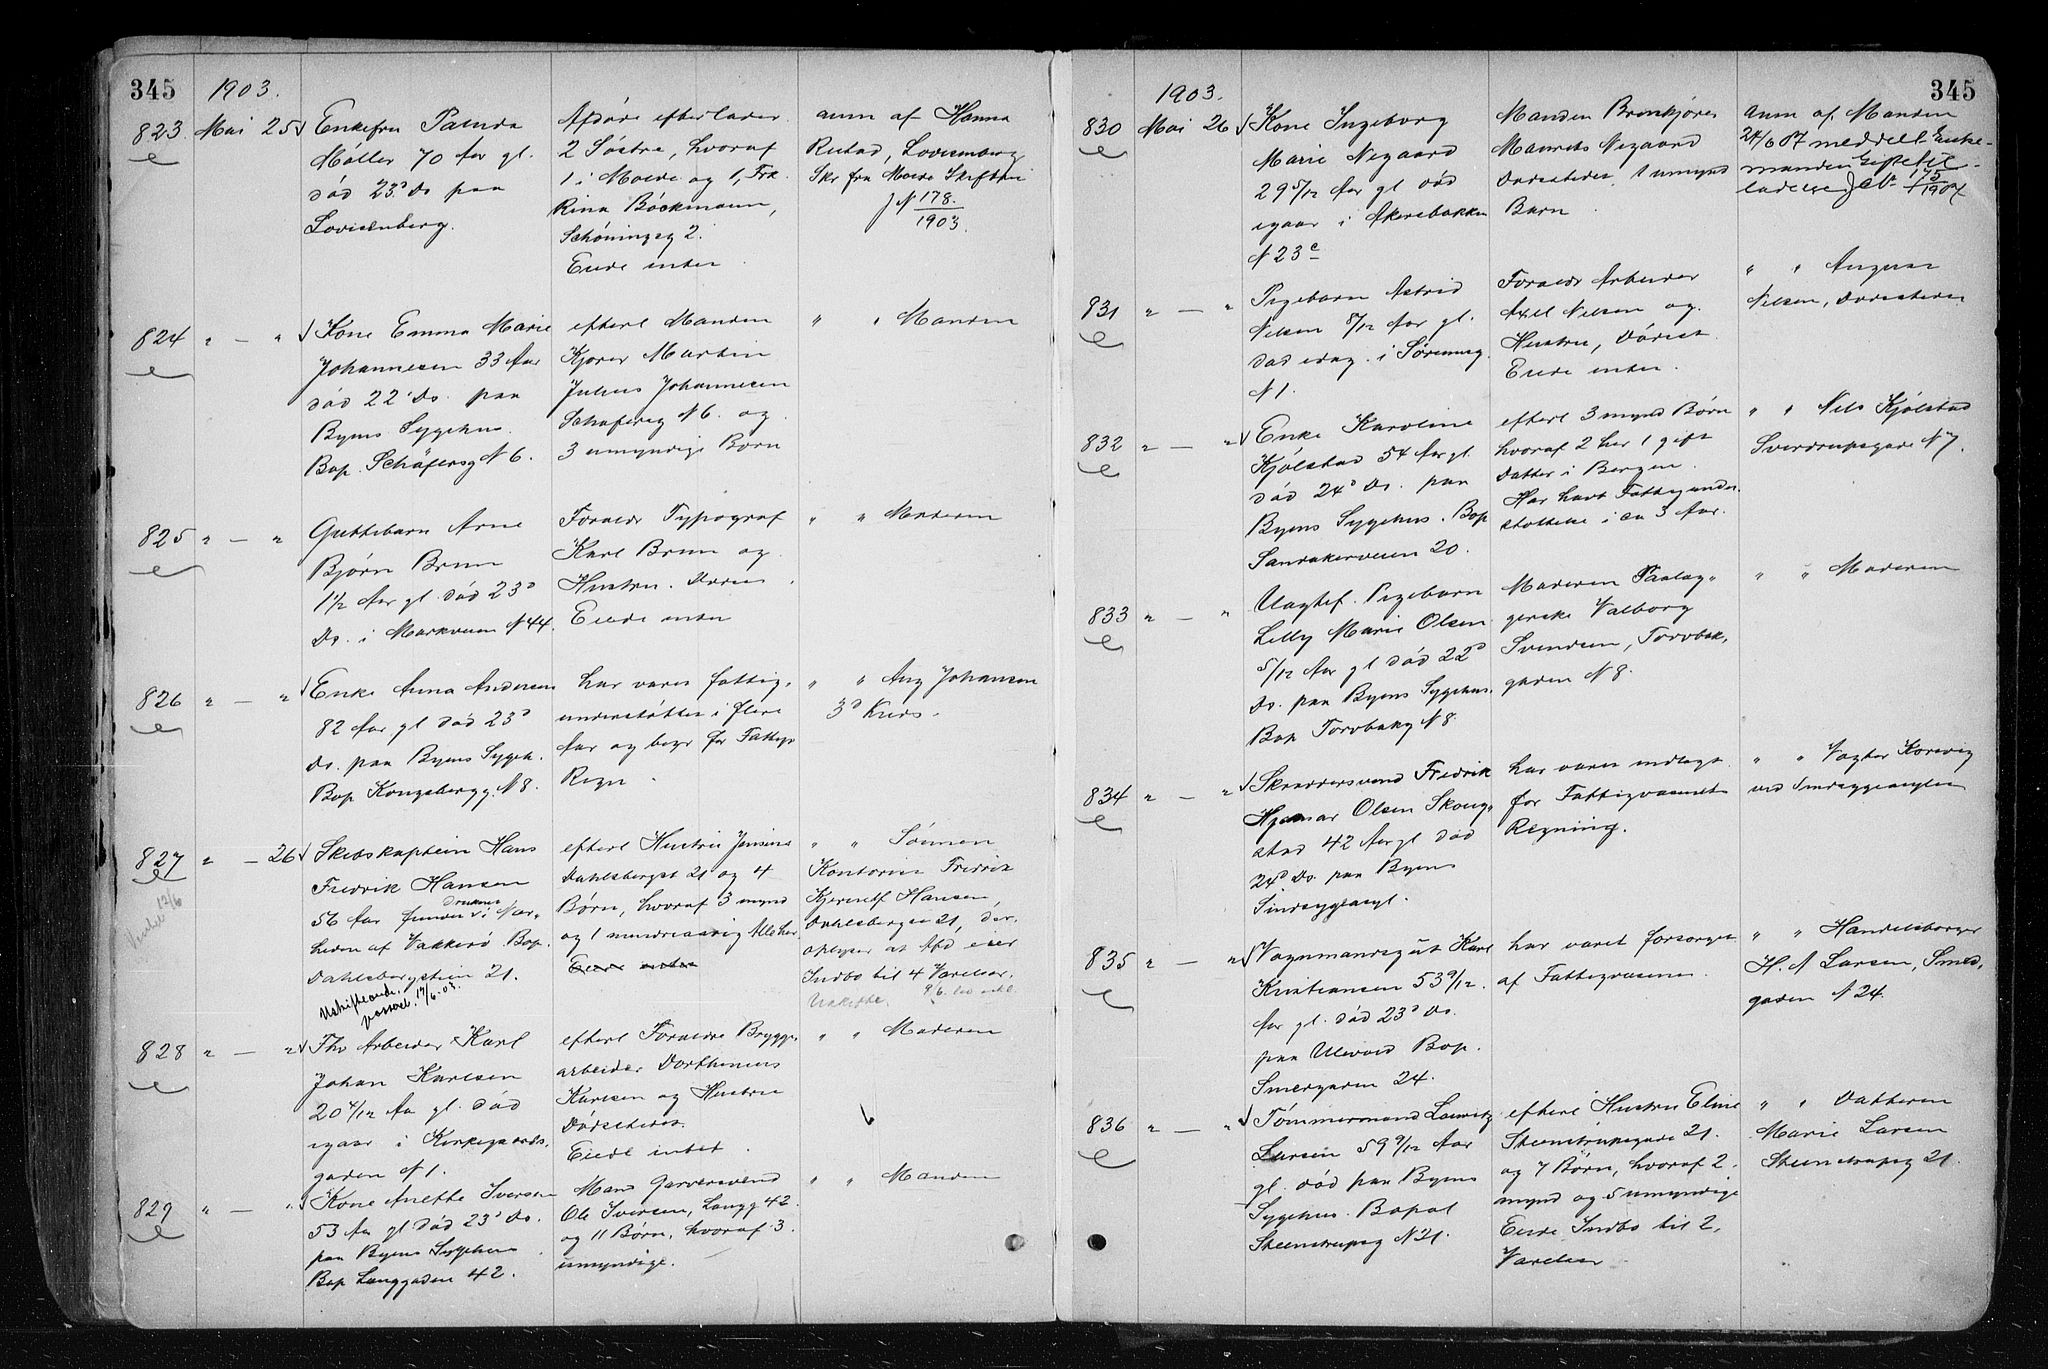 345
1903.
823
Mai 25
Enkefru
Møller 70 Aar gl.
død 23' Ds paa
Lovisenberg.
Afdøde efterlader
2 Søstre, hvoraf
1 i Molde og 1, Frk.
Rina Böckmann,
Schøningsg 2.
Eiede intet
anm af Hanna
Rustad, Lovisenberg
Skr fra Molde Skifteri
J N 178.
1903.
824
" — "
Kone Emma Marie
Johannesen 33 Aar
død 22' Ds. paa
Byens Sygehus.
Bop. Schäfersg N 6.
efterl Manden
Kjører Martin
Julius Johannesen
Schafersg N 6. og
3 umyndige Børn
" " Manden
825
" — "
Guttebarn Arne
Bjørn Brun
1½ Aar gl. død 23d
Ds. i Markveien N 44.
Foraeldr Typograf
Karl Brun og
Hustru.
Eiede intet
" " Moderen
826
" — "
Enke Anna Andersen
82 Aar gl død 23d
Ds. paa Byens Sygeh.
Bop Kongsbergg. N 8.
har været fattig-
understøttet i flere
Aar og begr for Fattigv
Regn.
" " Aug Johansen
3d Kreds.
827
" — 26
Skibskaptein Hans
Fredrik Hansen
56 Aar funden druknet i Nær-
heden af Vækkerø Bop.
Dahlsbergstien 21.
Udskifteande.
17/6.03.
efterl Hustru Jensine
Dahlsbergst 21 og 4
Børn, hvoraf 3 mynd
og 1 mindreaarig Alle her
Eiede intet
" " Sønnen
Kontorist Fredrik
Hansen,
Dahlsbergst 21, der
oplyser at Afd eier
Indbo til 4 Værelser.
Uskifte.
12/6
828
" — "
Fhv Arbeider Karl
Johan Karlsen
20 4/12 Aar gl. død
igaar i Kirkegaards-
gaden N 1.
efterl Foraeldre Brygge-
arbeider Dorthenius
Karlsen og Hustru
Dødsstedet.
Eiede intet.
" " Moderen
829
" — "
Kone Anette Iversen
53 Aar gl død 23' Ds.
paa Byens Sygehus
Bop Langgaden 42.
Mand Garversvend
Ole Iversen, Langg 42
og 11 Børn, hvoraf 3
umyndige.
" " Manden
345
1903.
830
Mai 26
Kone Ingeborg
Marie Nygaard
29 5/12 Aar gl død
igaar i Akersbakken
N 23c
Manden
Maurits Nygaard
Dødsstedet, 1 umynd
Barn.
Anm af Manden
24/6 07 meddelt Enke-
manden Giftetil-
ladelse
831
" — "
Pigebarn Astrid
Nilsen 8/12 Aar gl.
død idag i
N 1.
Foraeldr Arbeider
Axel Nilsen og
Hustru, Dødsst.
Eiede intet.
" "
Nilsen, Dødsstedet
832
" — "
Enke Karoline
Kjølstad 54 Aar gl.
død 24d Ds. paa
Byens Sygehus. Bop
Sandakerveien 20.
efterl 3 mynd Børn
hvoraf 2 her 1 gift
Datter i Bergen.
Har havt Fattigunder-
støttelse i ca 3 Aar.
" " Nils Kjølstad
Sverdrupsgade N 7.
833
" — "
Uægtef. Pigebarn
Lilly Marie Olsen
5/12 Aar gl død 22d
Ds. paa Byens Sygehus.
Bop Torvbakg N 8.
Moderen Paalæg-
gerske Valborg
Svendsen, Torvbak-
gaden N 8.
" " Moderen
834
" — "
Skræddersvend Fredrik
Hjalmar Olsen Skoug-
stad 42 Aar gl død
24d Ds. paa Byens
Sindsygeasyl.
har været indlagt
for Fattigvæsenets
Regning.
" " Vogter Korsvig
ved Sindsygeasylet
835
" — "
Vognmandsgut Karl
Kristiansen 53 9/12
Aar gl. død 23d Ds.
paa Ulevold Bop.
Smedgaden 24.
har været forsørget
af Fattigvæsenet.
" " Handelsborger
H. A Larsen, Smed-
gaden N 24.
836
" — "
Tømmermand Lauritz
Larsen 59 9/12 Aar
gl. død paa Byens
Sygehus. Bopæl
Steenstrupsg N 21.
efterl Hustru Eline
Steenstrupsgade 21.
og 7 Børn, hvoraf 2
mynd og 5 umyndige
Eiede Indbo til 2
Værelser
" " Datteren
Marie Larsen
Steenstrupsg 21.